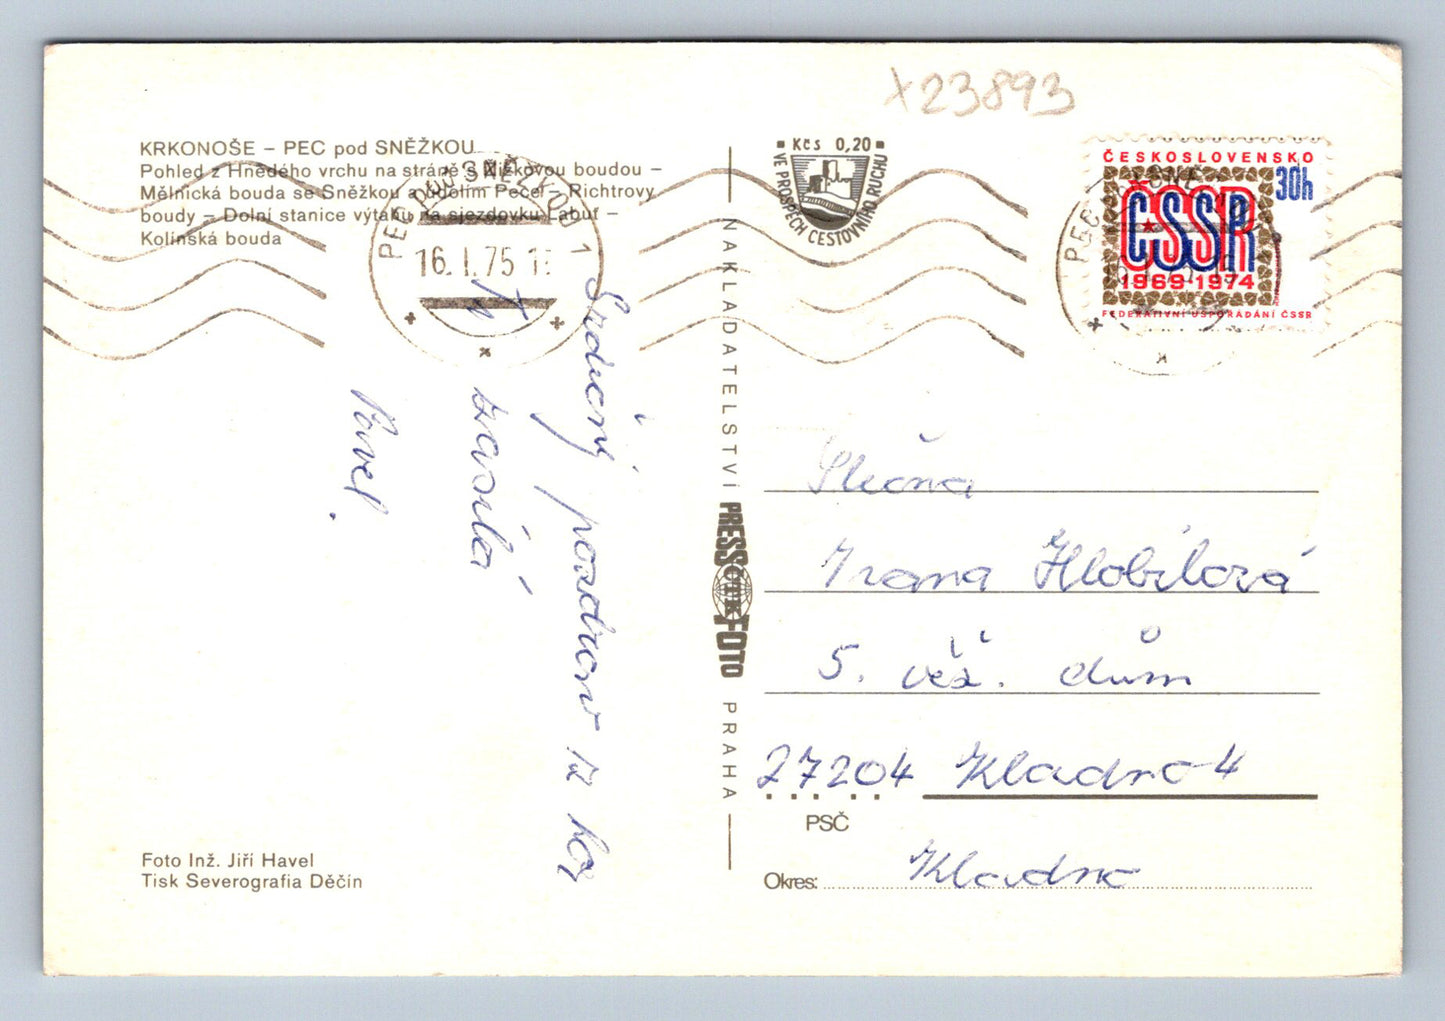 x23893
KRKONOŠE – PEC pod SNĚŽKOU
Pohled z Hnědého vrchu na stráně s Žižkovou boudou –
Mělnická bouda se Sněžkou a údolím Pece – Richtrovy
boudy – Dolní stanice výtahu na sjezdovku Labuť –
Kolínská bouda
PEC POD SNĚŽKOU 1
16. I. 75
Srdečný
pozdrav z hor
zasílá
Pavel.
Foto Inž. Jiří Havel
Tisk Severografia Děčín
NAKLADATELSTVÍ PRESSFOTO PRAHA
ČTK
Kčs 0,20
VE PROSPĚCH CESTOVNÍHO RUCHU
ČESKOSLOVENSKO
30h
ČSSR
1969-1974
FEDERATIVNÍ USPOŘÁDÁNÍ ČSSR
Slečna
Ivana Hlobilová
5. věž. dům
27204 Kladno 4
PSČ
Okres: Kladno